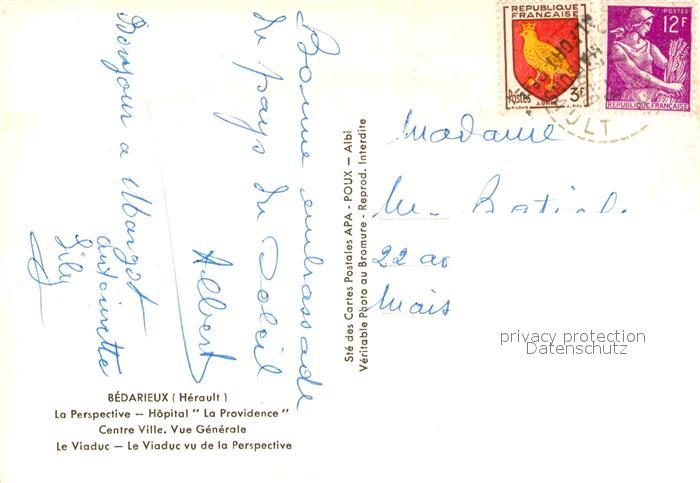 Bonne embrassade
du pays du Soleil
Albert
Bonjour a Margot
Antoinette
Lily
BÉDARIEUX ( Hérault )
La Perspective — Hôpital " La Providence "
Centre Ville. Vue Générale
Le Viaduc — Le Viaduc vu de la Perspective
Sté des Cartes Postales APA - POUX — Albi
Véritable Photo au Bromure - Reprod. Interdite
REPUBLIQUE
FRANÇAISE
Postes 3F
AUNIS
POSTES
12F
REPUBLIQUE FRANÇAISE
Madame
22 av
Mais
privacy protection
Datenschutz